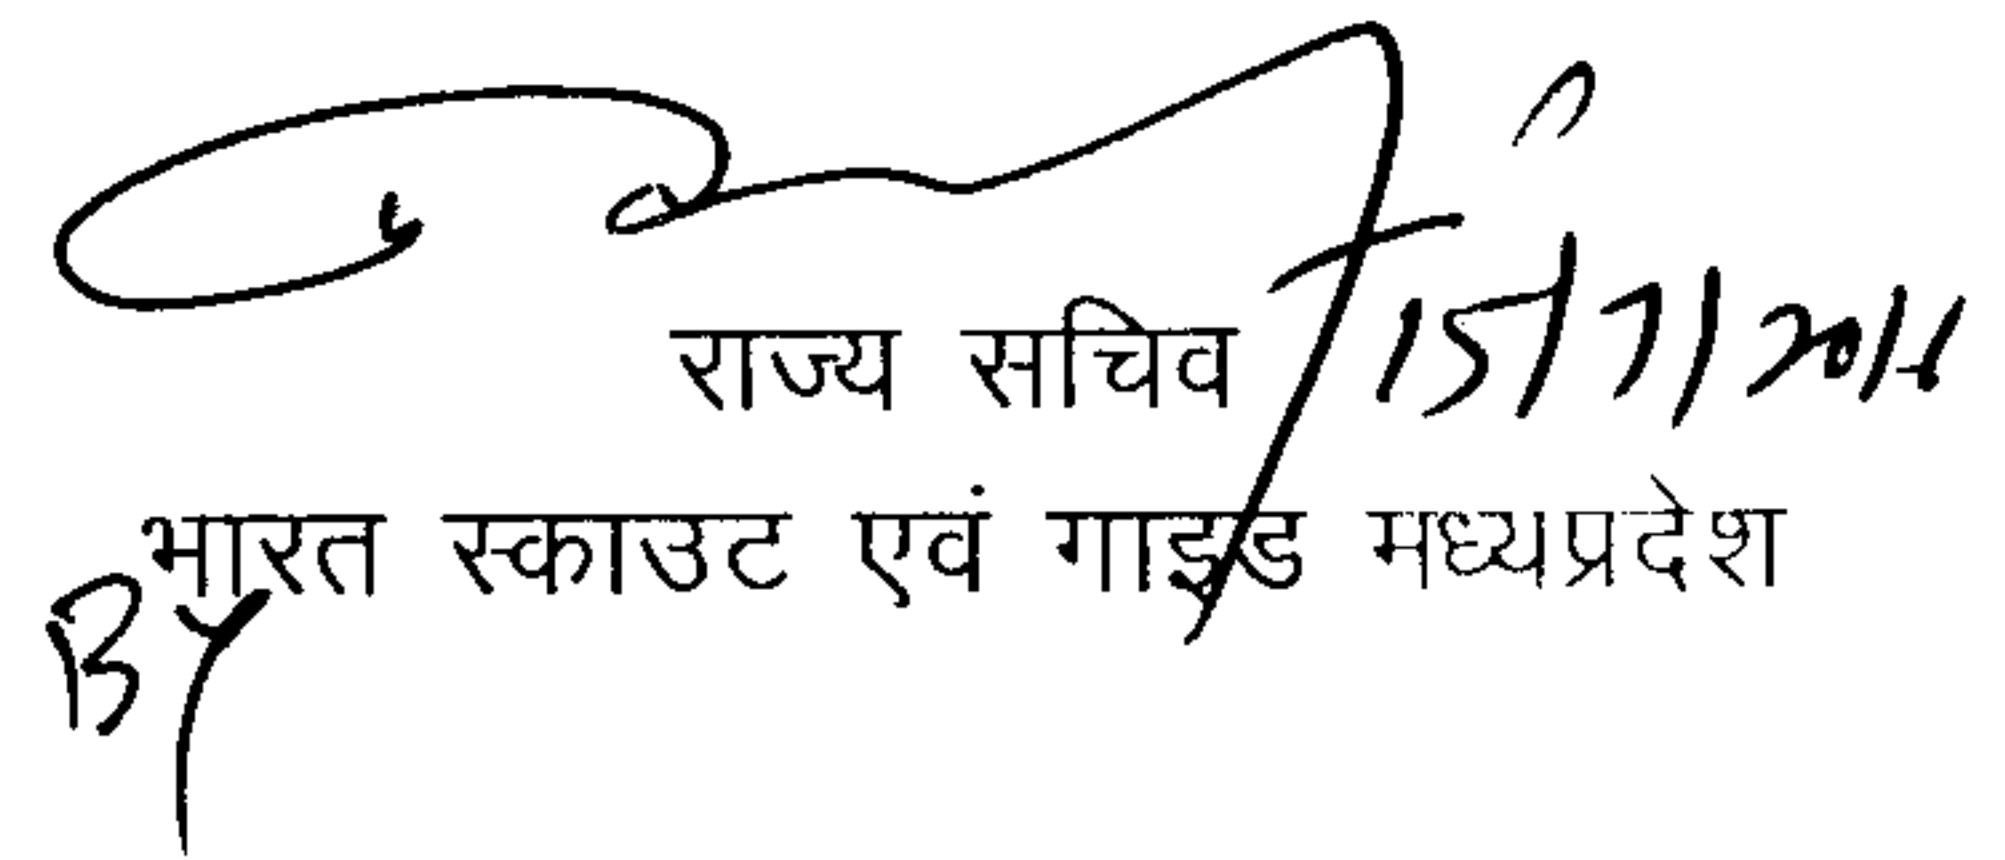 राज्य सचिव 15/7/
भारत स्काउट एवं गाइड मध्यप्रदेश
By